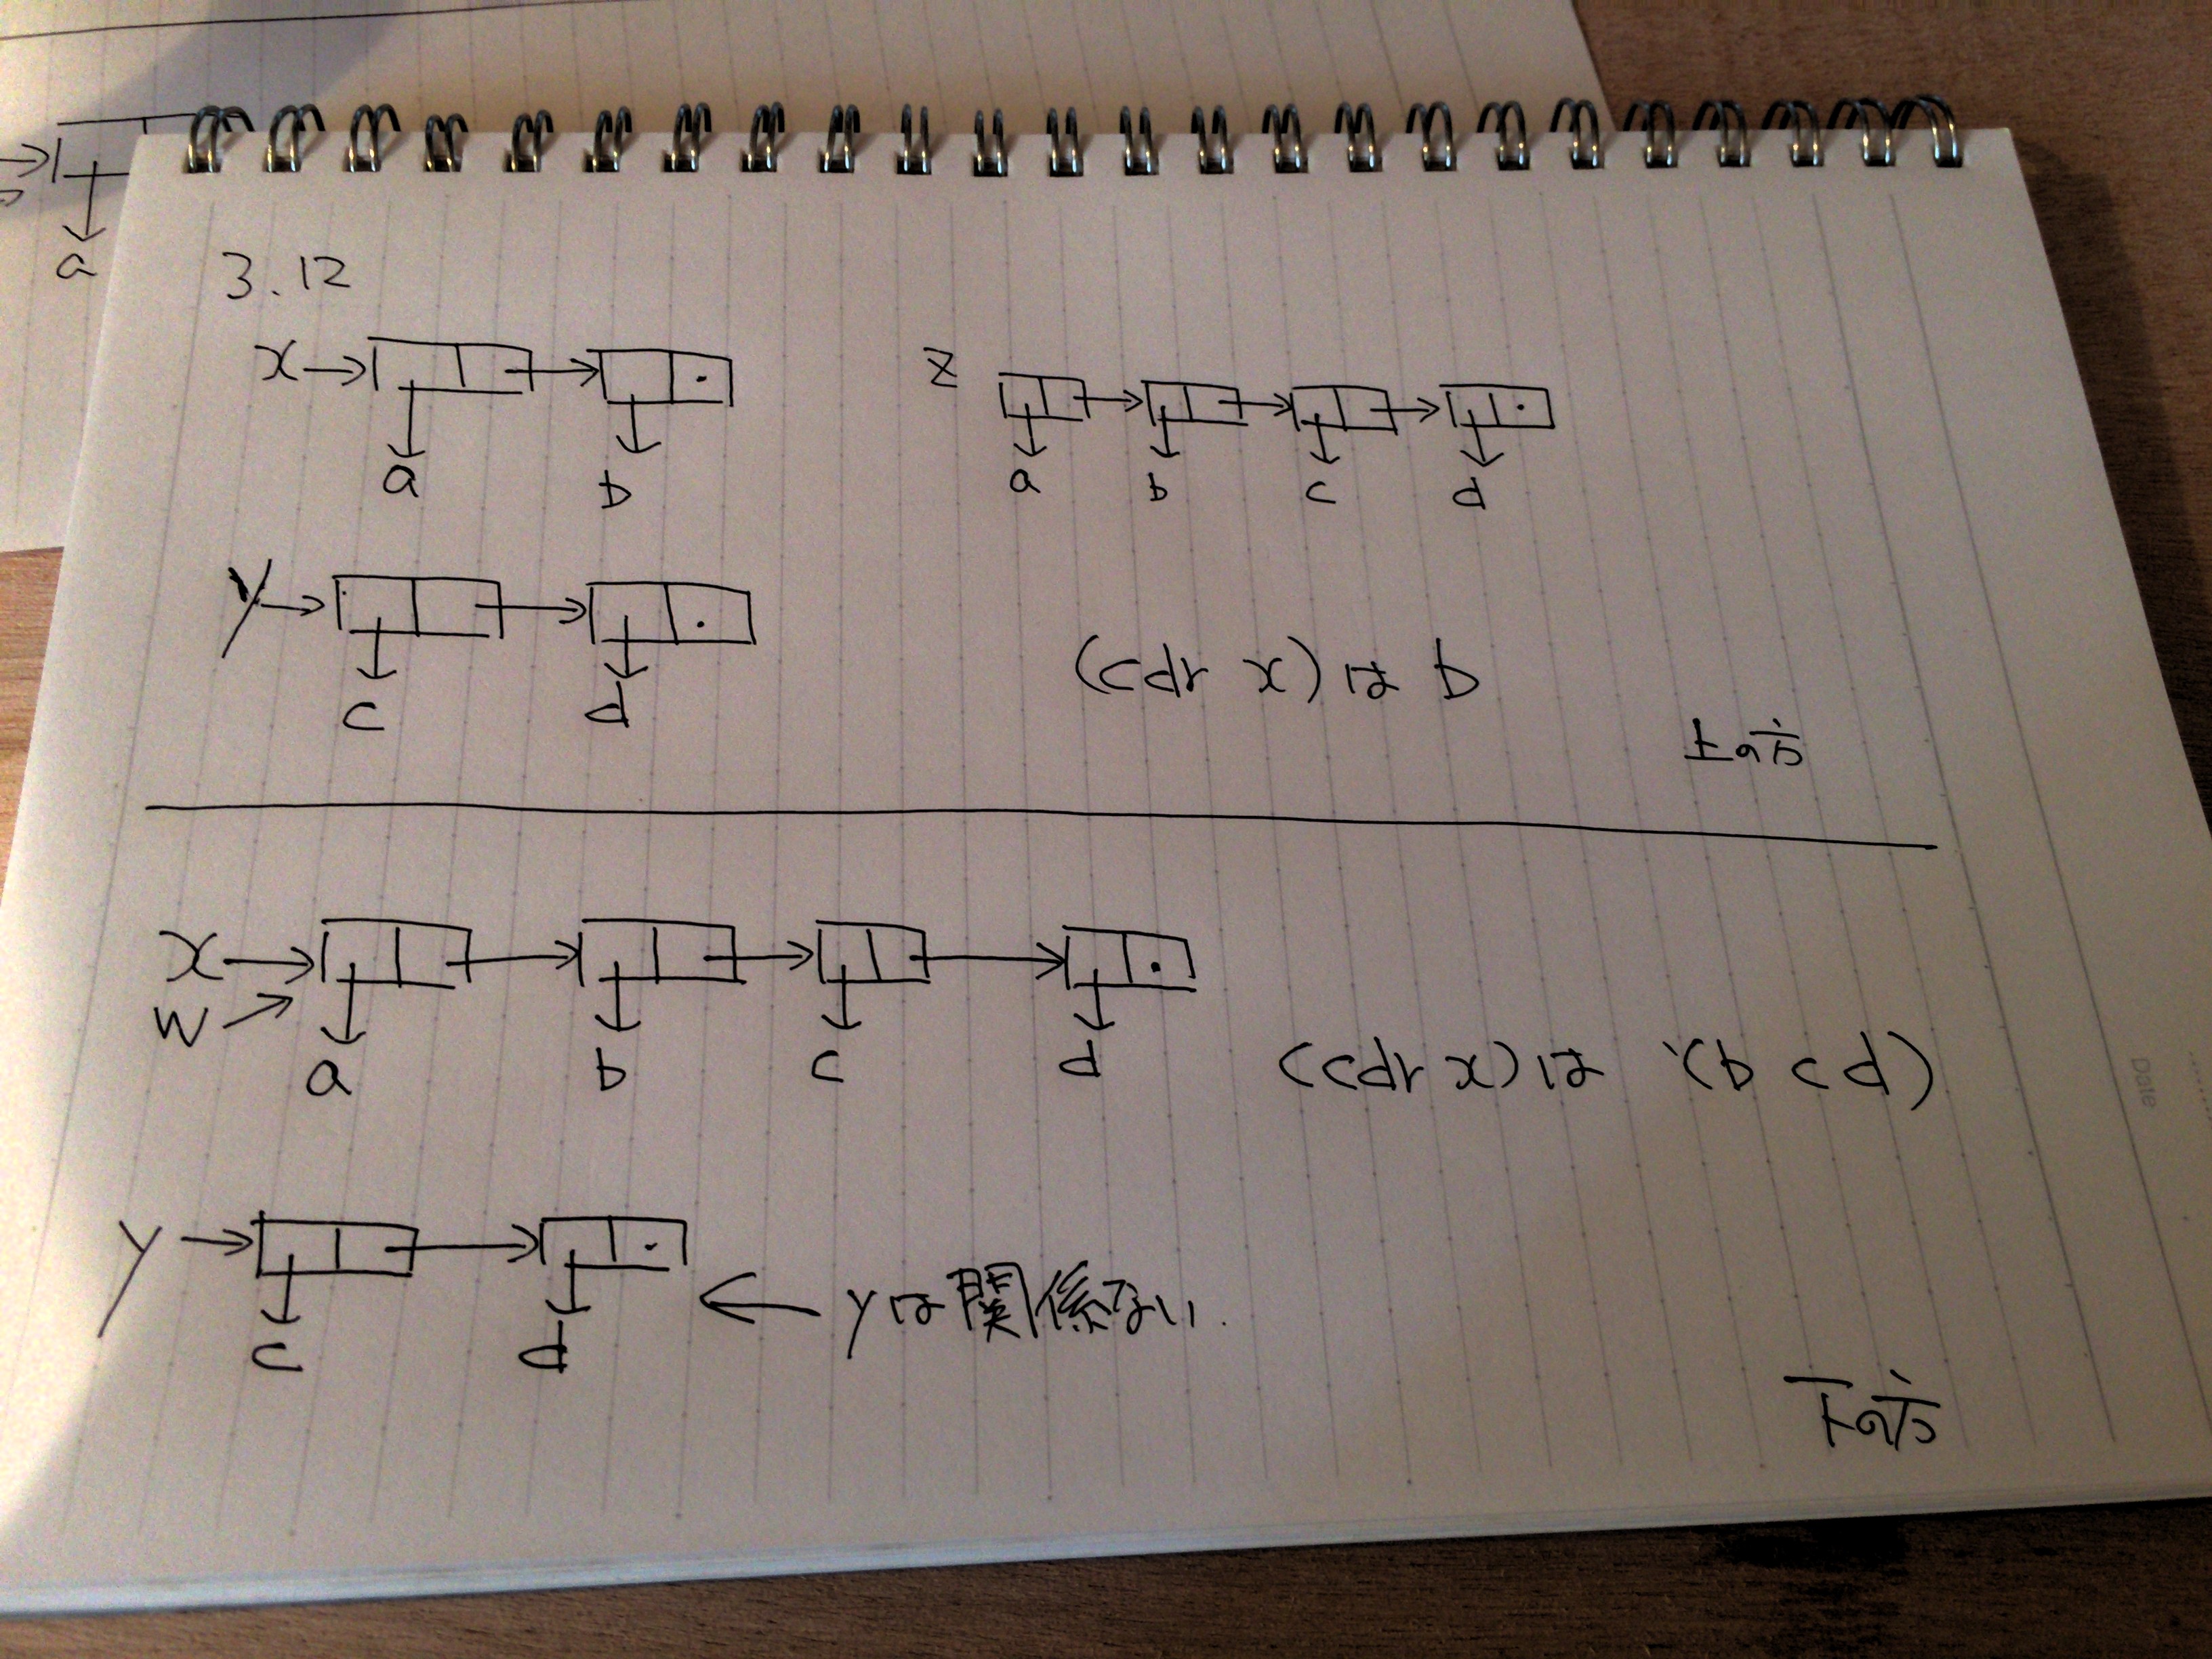 a
3.12
x
a b
z
a b c d
y
c d
(cdr x) は b
上の方
x
w
a b c d
(cdr x) は '(b c d)
y
c d
yは関係ない.
下の方
Date